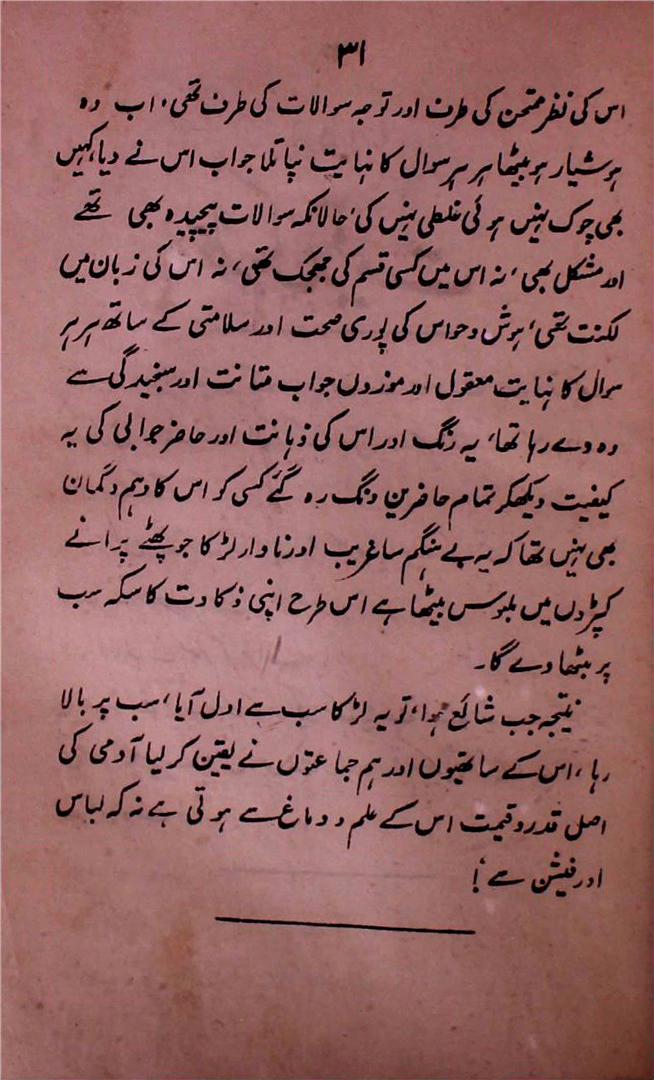 ۳۱
اس کی نظر ممتحن کی طرف اور توجہ سوالات کی طرف تھی، اب وہ
ہوشیار ہو بیٹھا ہر ہر سوال کا نہایت نپا تلا جواب اس نے دیا، کہیں
بھی چوک نہیں ہوئی غلطی نہیں کی، حالانکہ سوالات پیچیدہ بھی تھے
اور مشکل بھی، نہ اس میں کسی قسم کی جھجک تھی، نہ اس کی زبان میں
لکنت تھی، ہوش و حواس کی پوری صحت اور سلامتی کے ساتھ ہر ہر
سوال کا نہایت معقول اور موزوں جواب متانت اور سنجیدگی سے
وہ دے رہا تھا، یہ رنگ اور اس کی ذہانت اور حاضر جوابی کی یہ
کیفیت دیکھکر تمام حاضرین دنگ رہ گئے کسی کو اس کا وہم و گمان
بھی نہیں تھا کہ یہ بے ہنگم سا غریب اور نادار لڑکا جو پھٹے پرانے
کپڑوں میں ملبوس بیٹھا ہے اس طرح اپنی ذکاوت کا سکہ سب
پر بٹھا دے گا۔
نتیجہ جب شائع ہوا، تو یہ لڑکا سب سے اول آیا، سب پر بالا
رہا، اس کے ساتھیوں اور ہم جماعتوں نے یقین کر لیا آدمی کی
اصل قدر و قیمت اس کے علم و دماغ سے ہوتی ہے نہ کہ لباس
اور فیشن سے،!